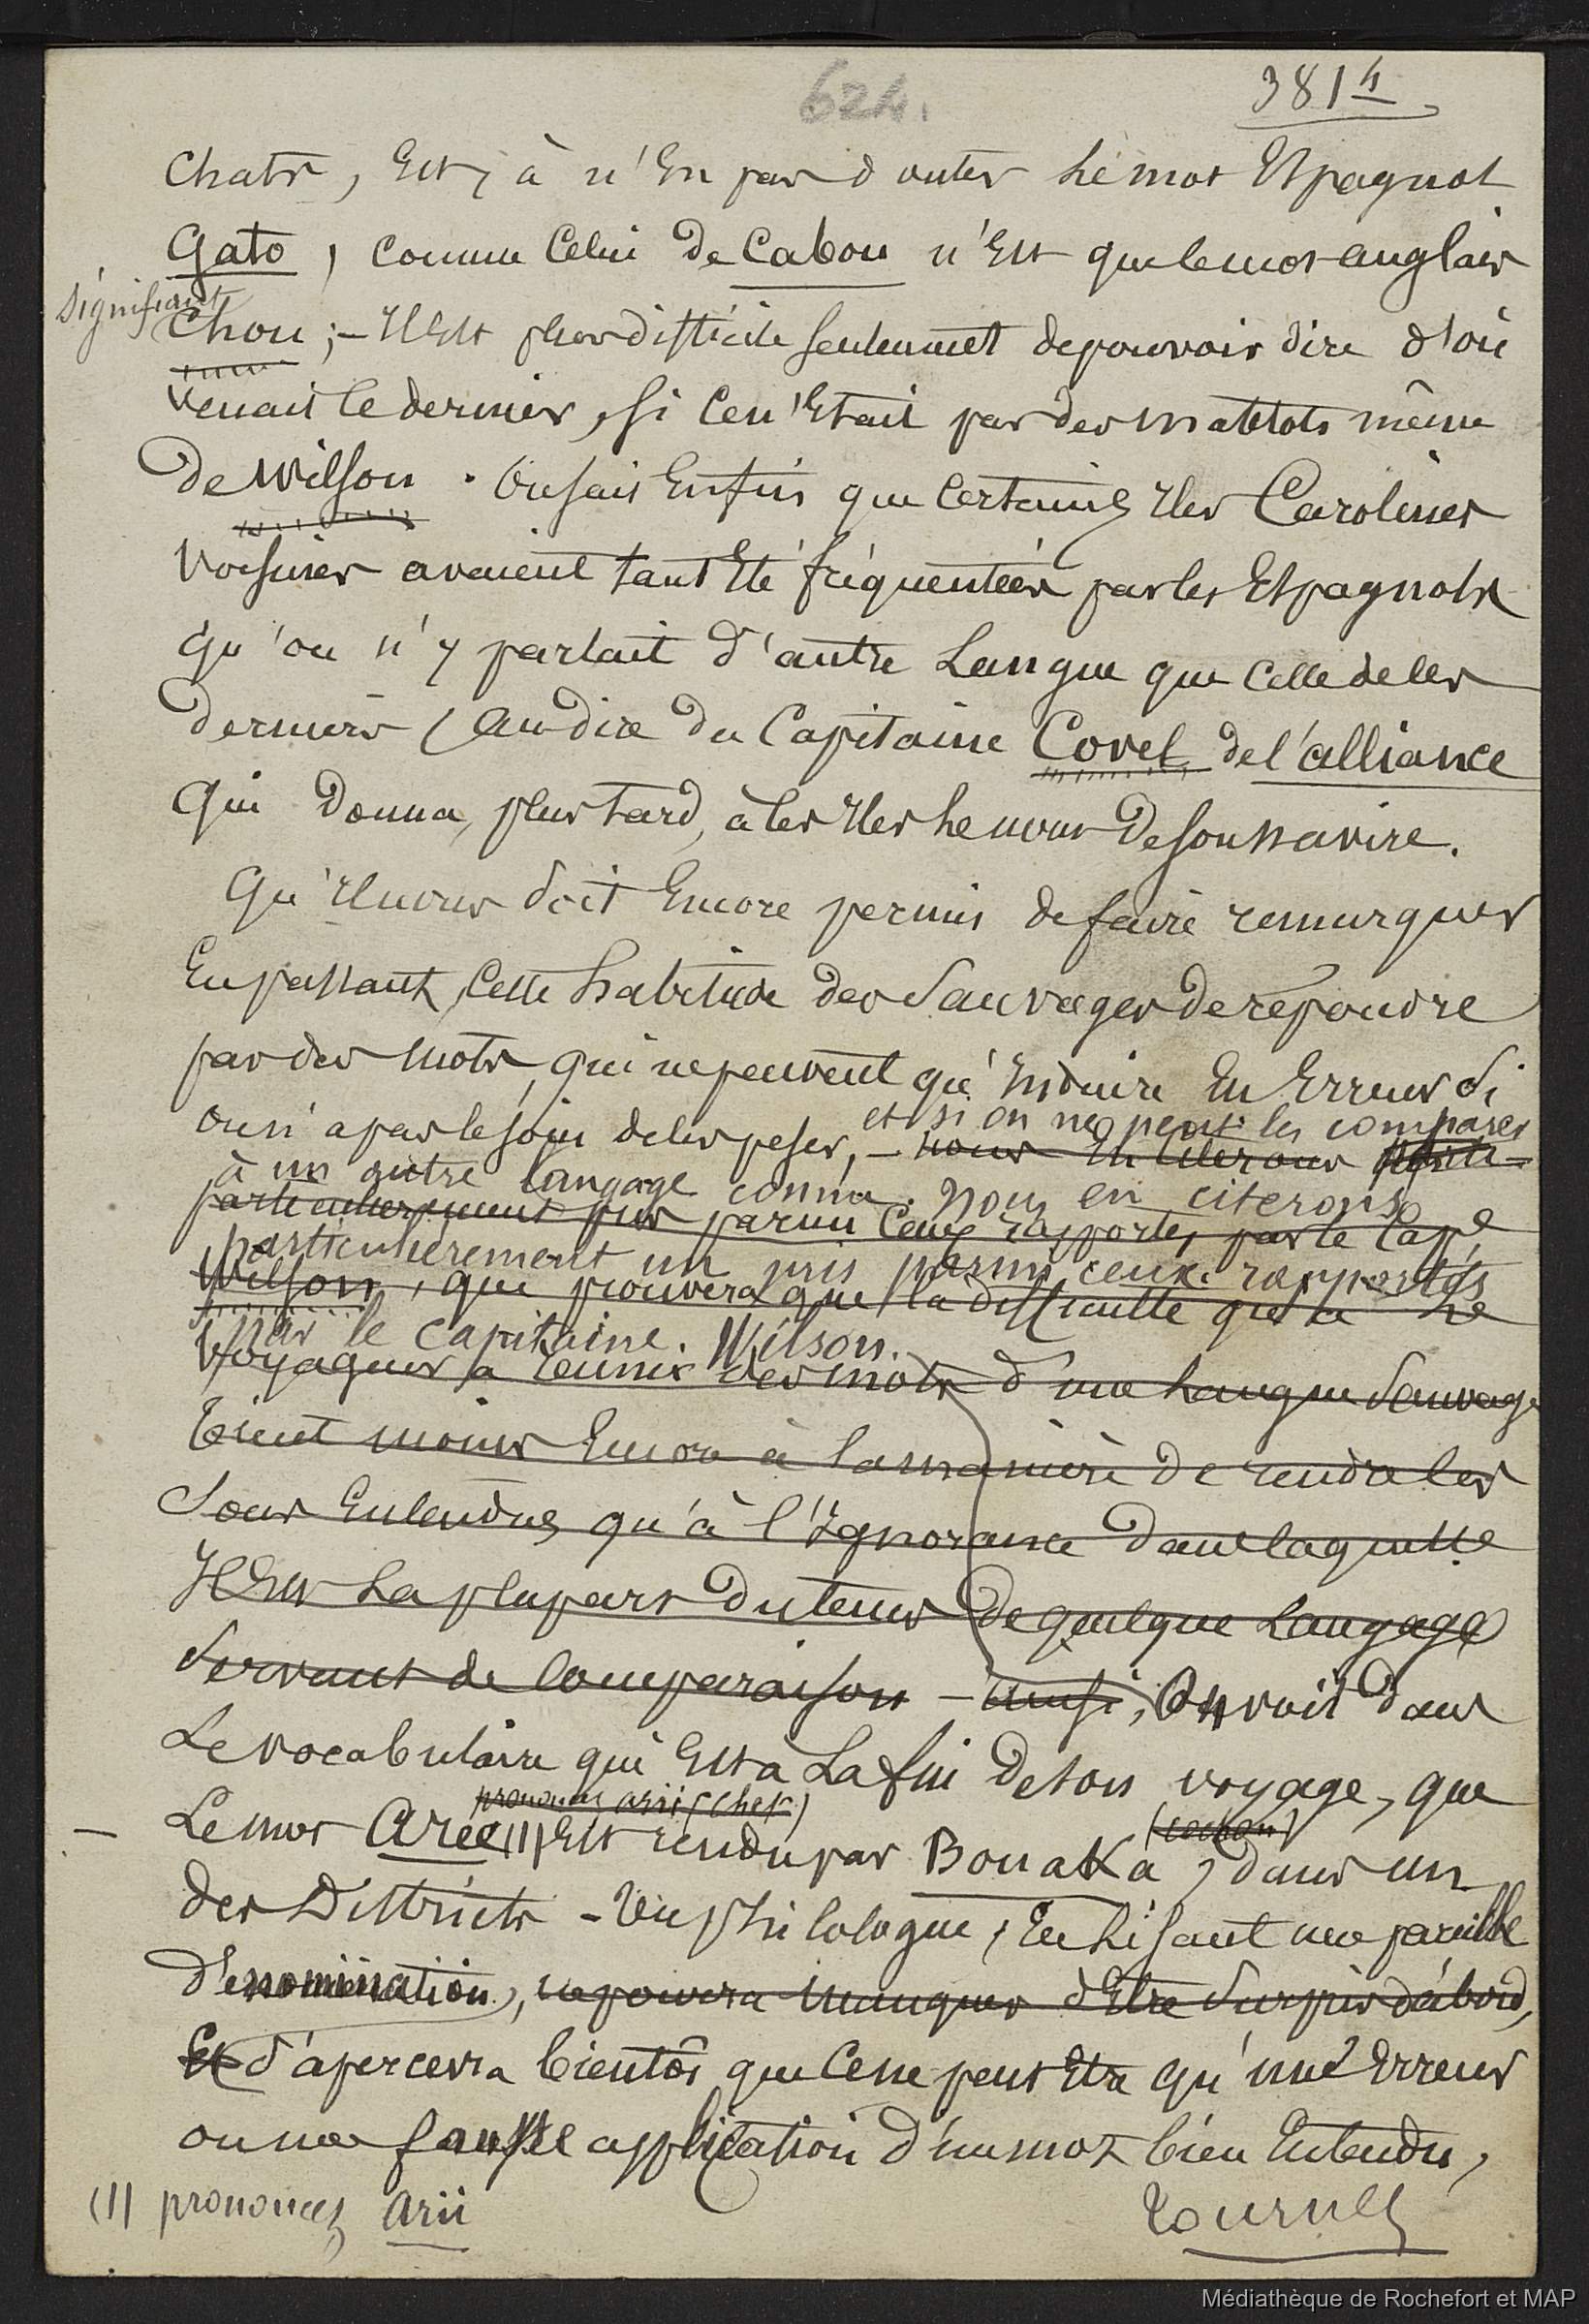 624.
3814
chats, Est, à n'En pas douter le mot Espagnol
Gato, comme Celui de Cabou n'Est que le mot anglais
signifiant
Chou ; – Il Est plus difficile seulement de pouvoir dire d'où
venait le dernier, si Ce n'Etait par des matelots même
de Wilson. On sait Enfin que Certaines Iles Carolines
voisines avaient tant Eté fréquentées par les Espagnols
qu'on n'y parlait d'autre Langue que Celle de Ces
derniers (au dire du Capitaine Covel de l'alliance
qui donna, plus tard, à Ces Iles le nom de son navire.
Qu'Il nous soit Encore permis de faire remarquer
En passant, Cette habitude des Sauvages de répondre
par des mots, qui ne peuvent qu'Induire En Erreur si
et si on ne peut les comparer
on n'a pas le soin de les peser, – nous En Citerons parti-
à un autre langage connu. Nous en citerons
particulièrement pris parmi Ceux rapportés par le Cape
particulièrement un pris parmi ceux rapportés
Wilson, qui prouvera que la difficulté qu'a le
par le capitaine Wilson.
Voyageur à réunir des mots d'une Langue Sauvage
tient moins Encore à la manière de rendre les
Sons Entendus qu'à l'Ignorance dans laquelle
Il Est La plupart du tems de quelque Langage
Servant de Comparaison – ainsi, On voit dans
Le vocabulaire qui Est à La fin de son voyage, que
prononcez arii (chef)
(cochon)
– Le mot Aree (1) Est rendu par Bouaka, dans un
des Districts – Un philologue, En Lisant une pareille
dénomination, ne pourra manquer d'Etre Surpris d'abord,
Et s'apercevra bientôt que Ce ne peut Etre qu'une Erreur
ou une fausse application d'un mot bien Entendu,
(1) prononcez arii
Tournez
Médiathèque de Rochefort et MAP